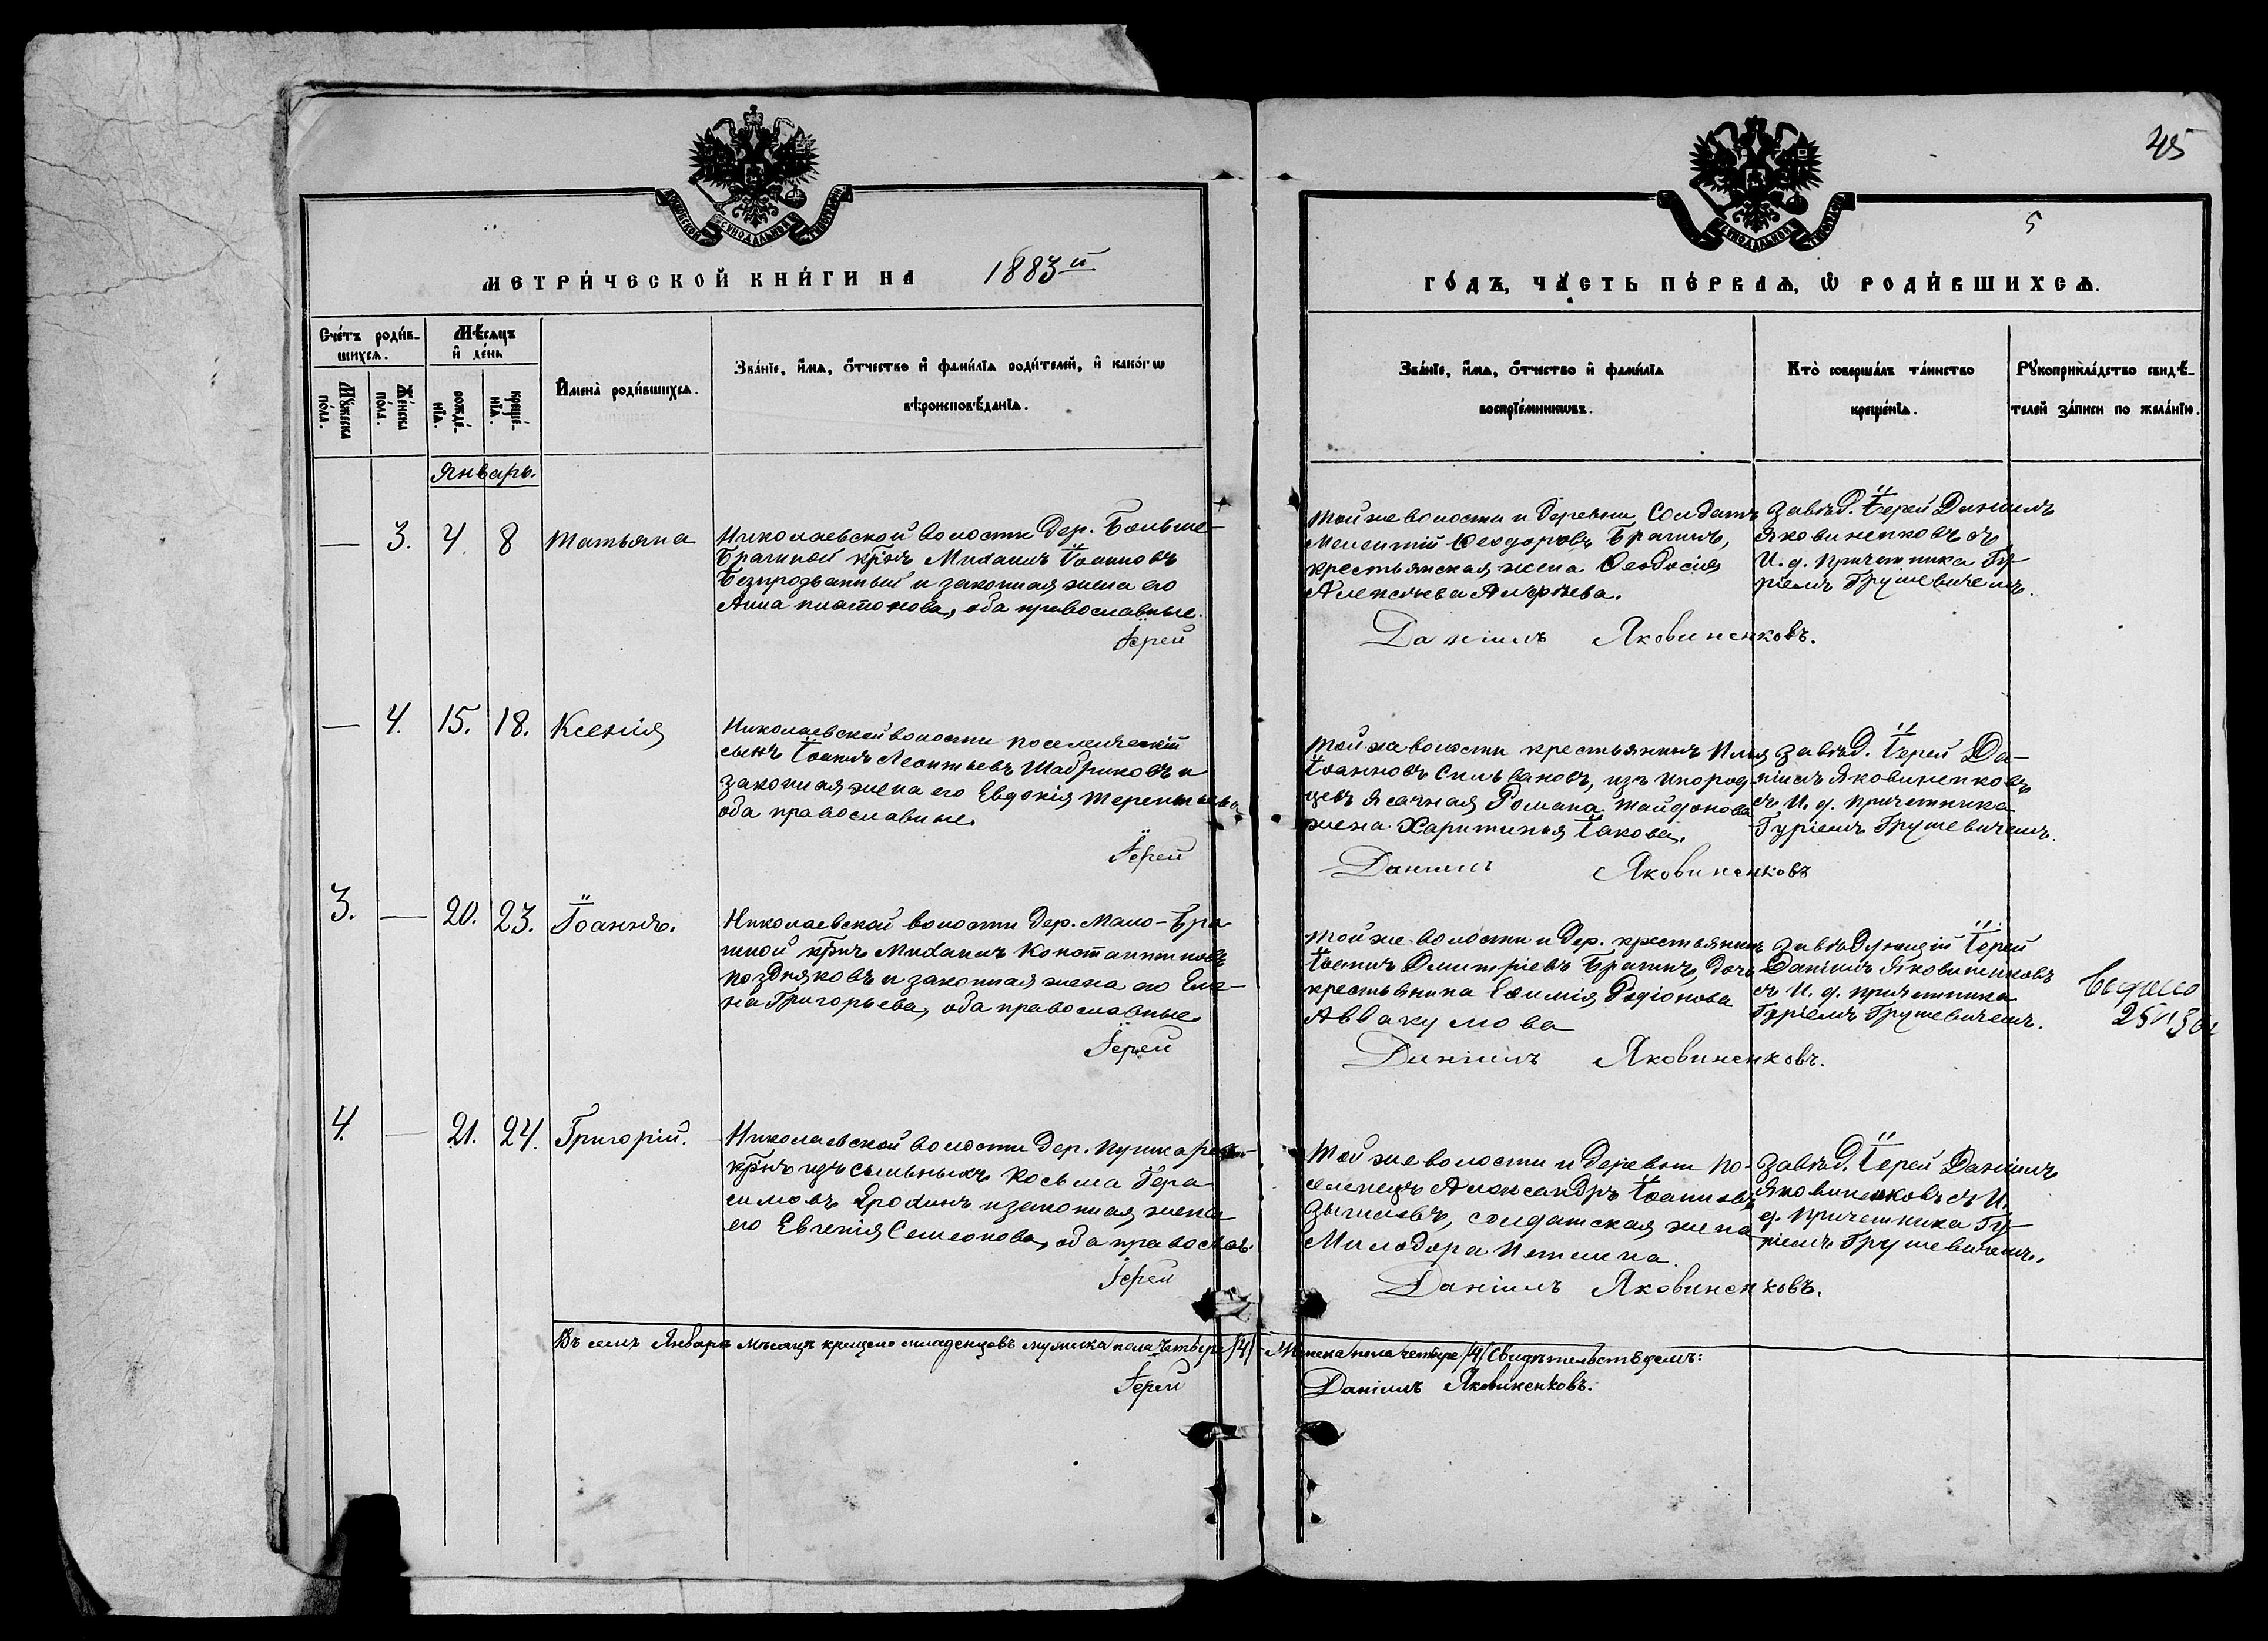 45
5
МОСКОВСКОЙ СѴНОДАЛЬНОЙ ТИПОГРАФІИ
СѴНОДАЛЬНОЙ ТИПОГРАФІИ
МЕТРИ́ЧЕСКОЙ КНИ́ГИ НА 1883й
ГО́ДЪ, ЧА́СТЬ ПЕ́РВАѦ, Ѡ҆ РОДИ́ВШИХСѦ.
Сче́тъ роди́в-
шихсѧ.
Мѣ́сѧцъ
и҆ де́нь
Му́жеска по́ла.
Же́нска по́ла.
рожде́-нїѧ.
креще́-нїѧ.
И҆мена̀ роди́вшихсѧ.
Зва́нїе, и҆́мѧ, ѻ҆́тчество и҆ фами́лїѧ роди́телей, и҆ како́гѡ
вѣроисповѣ́данїѧ.
Зва́нїе, и҆́мѧ, ѻ҆́тчество и҆ фами́лїѧ
воспрїе́мникѡвъ.
Кто̀ соверша́лъ та́инство
креще́нїѧ.
Рꙋкоприкла́дство свидѣ́-
телей за́писи по жела́нїю.
Январь.
— 3. 4. 8 Татьяна
Николаевской волости дер. Больше-
Брагиной крнъ Михаилъ Іоанновъ
Безпрозванный и законная жена его
Анна Платонова, оба православные.
Іерей
Той же волости и деревни солдатъ
Мелентій Ѳеодоровъ Брагинъ,
крестьянская жена Ѳеодосія
Алексѣева
Завѣд. Іерей Даніилъ
Яковиненковъ съ
И. д. причетника Гу-
ріемъ Грушевичемъ.
Даніилъ Яковиненковъ.
— 4. 15. 18. Ксенія
Николаевской волости поселенческій
сынъ Іоаннъ Леонтьевъ Шабриковъ и
законная жена его Евдокія Терентьева
оба православные.
Іерей
Той же волости крестьянинъ Илья
Іоанновъ Сильвановъ, изъ инород-
цевъ ясачная Романа Тайдонова
жена Харитинья Іакова.
Завѣд. Іерей Да-
ніилъ Яковиненковъ
съ И. д. причетника
Гуріемъ Грушевичемъ.
Даніилъ Яковиненковъ
3. — 20. 23. Іоаннъ.
Николаевской волости дер. Мало-Бра-
гиной крнъ Михаилъ Константиновъ
Поздняковъ и законная жена его Еле-
на Григорьева, оба православные
Іерей
Той же волости и дер. крестьянинъ
Іоаннъ Димитріевъ Брагинъ, дочь
крестьянина Евѳимія Родіонова
Аввакумова
Завѣдующій Іерей
Даніилъ Яковиненковъ
съ И. д. причетника
Гуріемъ Грушевичемъ.
Выдано
Даніилъ Яковиненковъ.
4. — 21. 24. Григорій.
Николаевской волости дер.
крнъ изъ ссыльныхъ Косьма Гера-
симовъ Ерохинъ и законная жена
его Евгенія Семеонова, оба православ.
Іерей
Той же волости и деревни по-
селенецъ Александръ Іоанновъ
солдатская жена
Милодора
Завѣд. Іерей Даніилъ
Яковиненковъ съ И.
д. причетника Гу-
ріемъ Грушевичемъ.
Даніилъ Яковиненковъ.
Въ семъ Январѣ мѣсяцѣ крещено младенцовъ мужеска пола четыре /4/ Женска пола четыре /4/ Свидѣтельствуемъ:
Іерей Даніилъ Яковиненковъ.